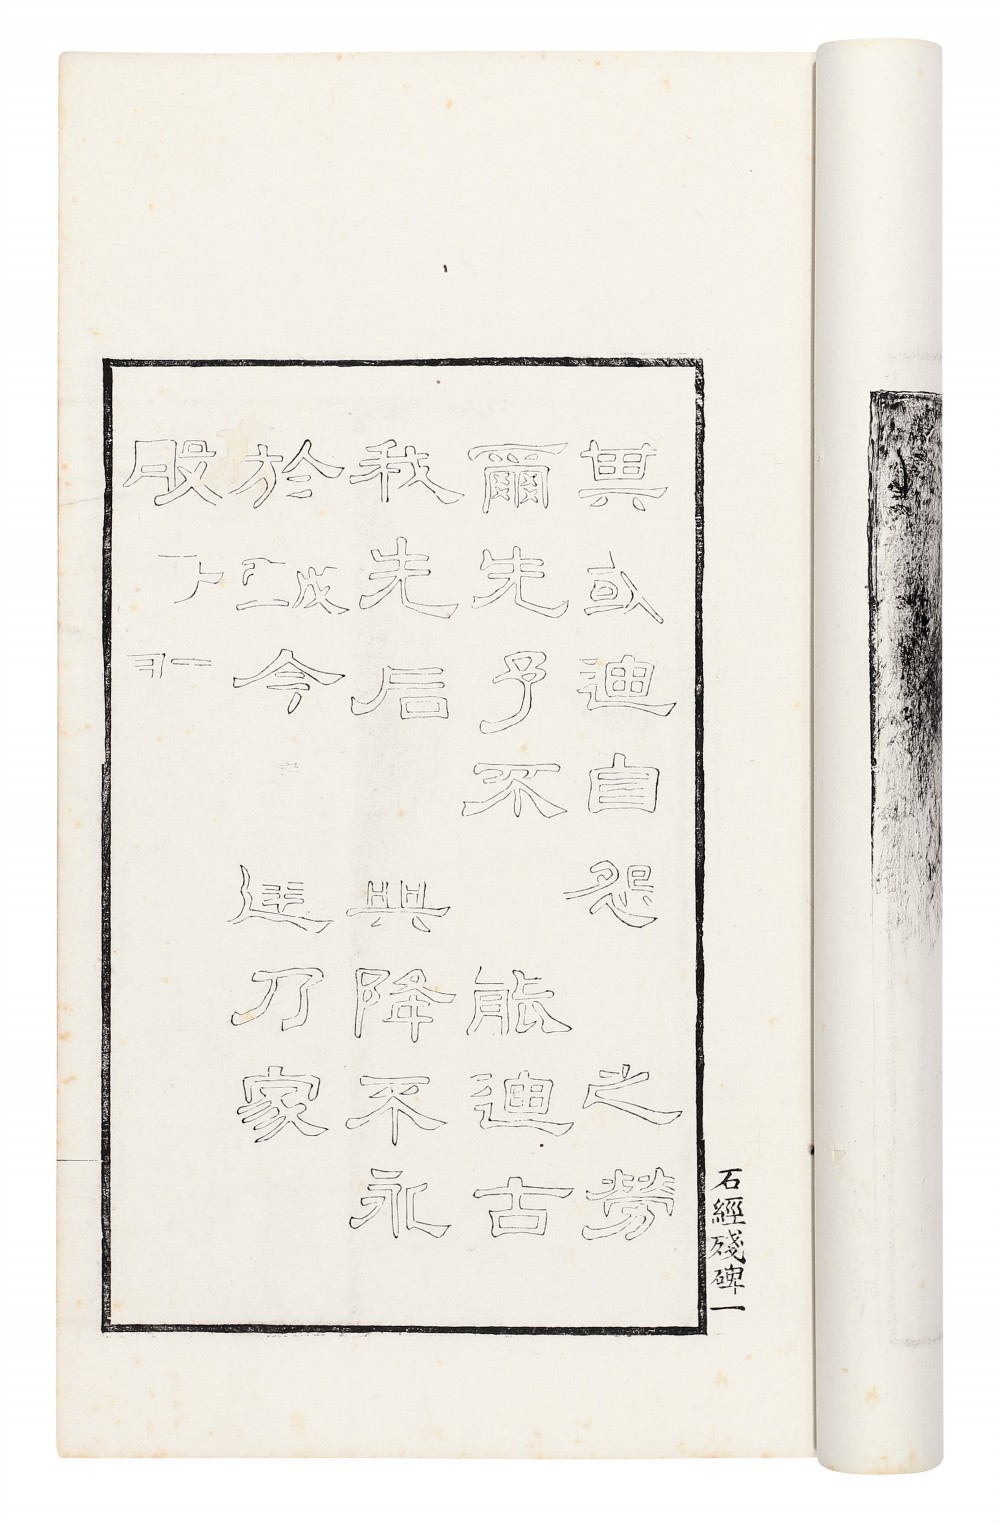 其或迪自怨之勞
爾先予不能迪古
我先后興降不永
於今乃家
股
石經殘碑一